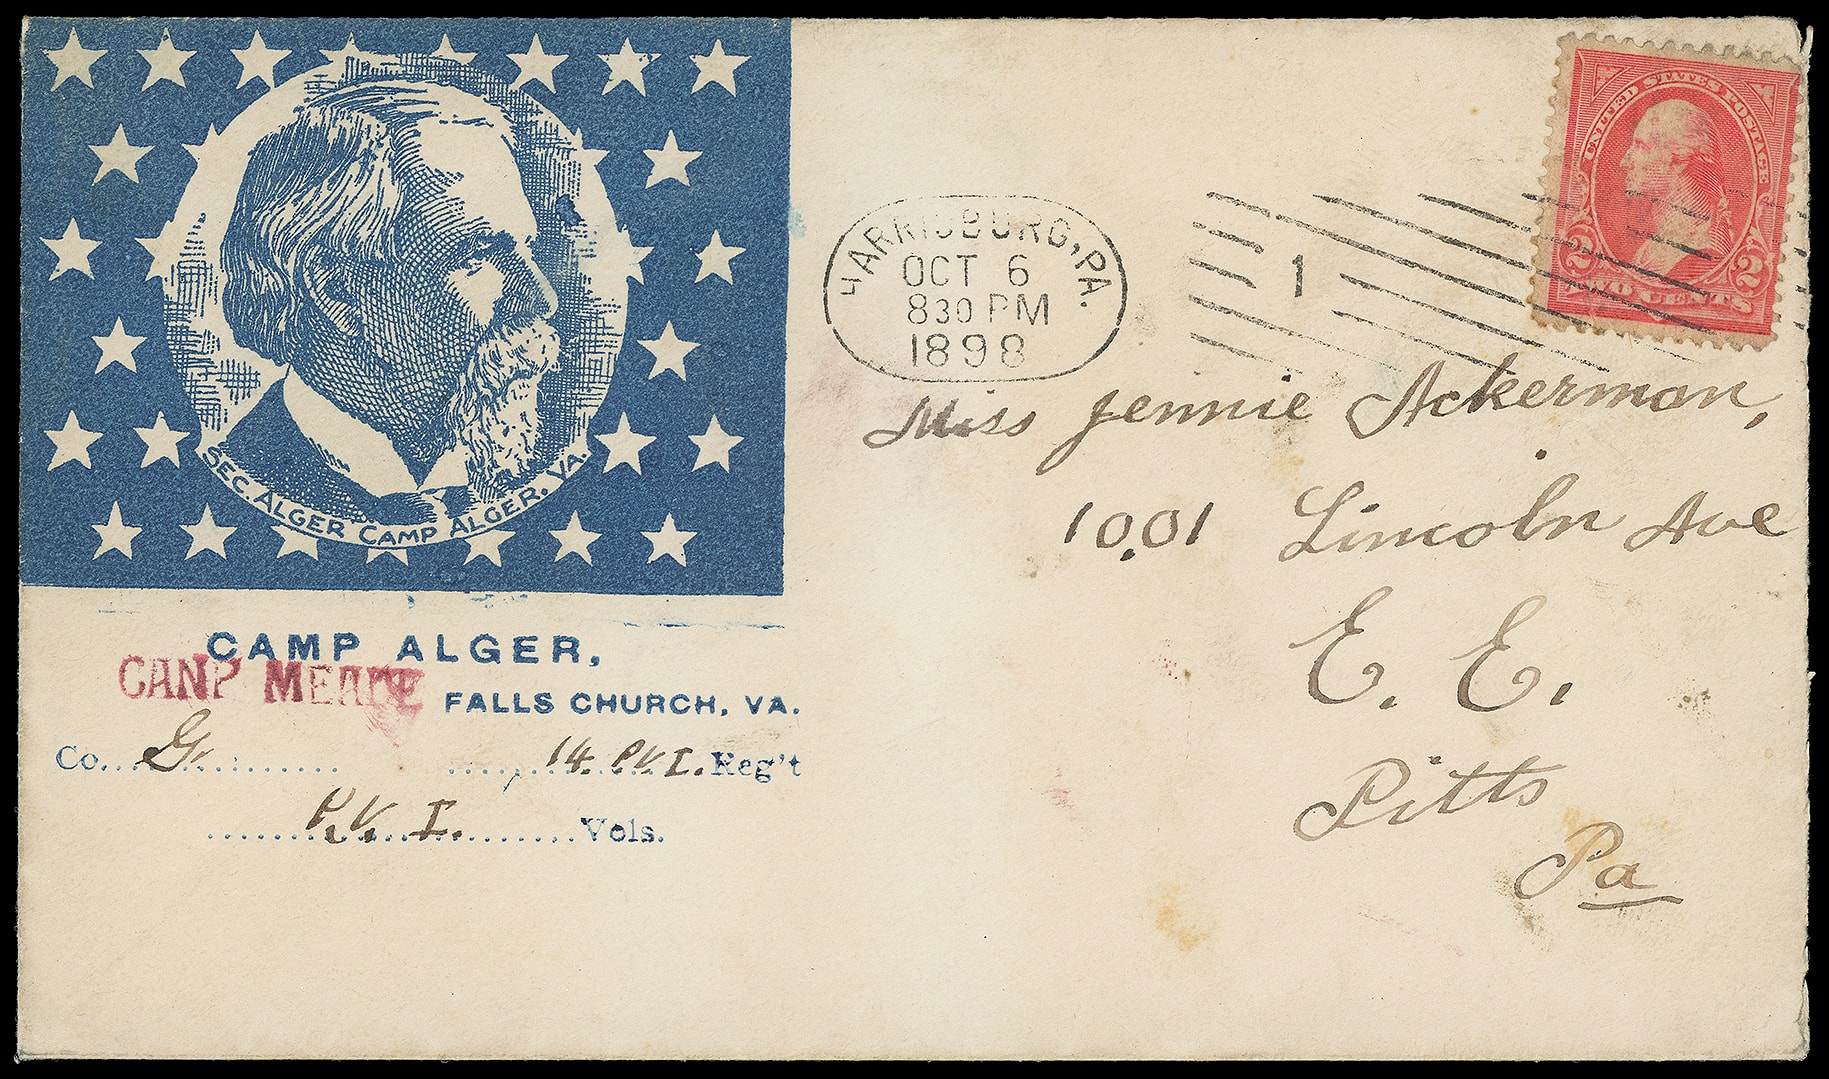 SEC. ALGER CAMP ALGER. VA.
CAMP ALGER,
CANP MEADE
FALLS CHURCH, VA.
Co. G. 14. P.V.I. Reg't
P.V. I. Vols.
HARRISBURG, PA.
OCT 6
830 PM
1898
1
UNITED STATES POSTAGE
2 2
TWO CENTS
Miss Jennie Ackerman,
1001 Lincoln Ave
E. E.
Pitts
Pa